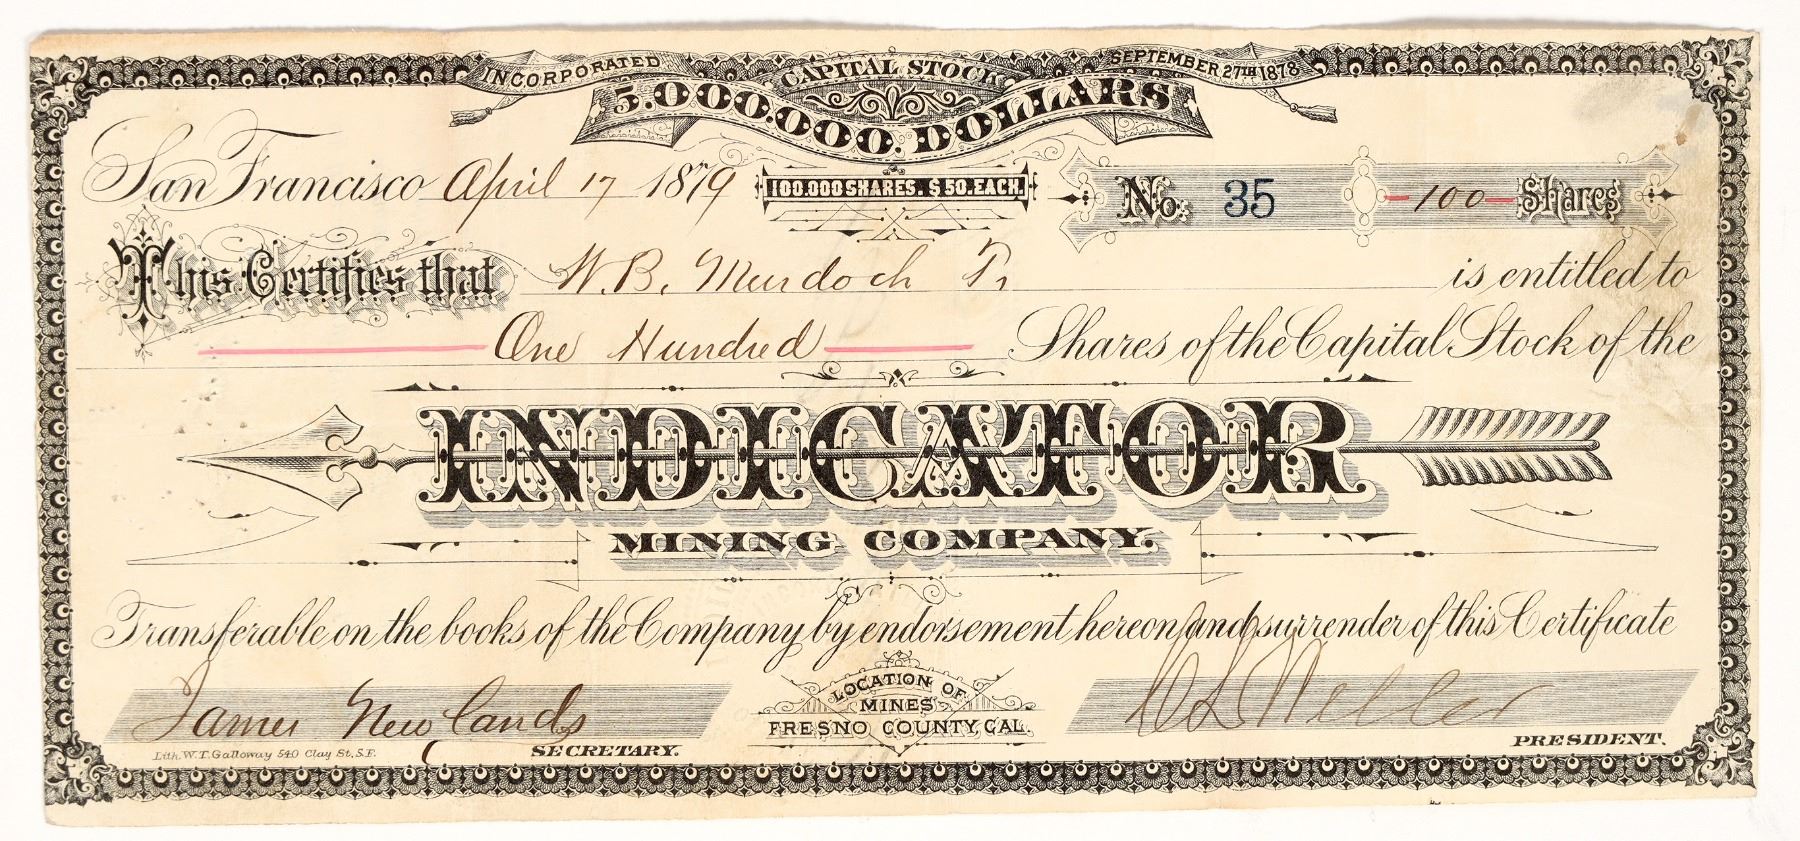 INCORPORATED CAPITAL STOCK SEPTEMBER 27TH 1878
5.000.000. DOLLARS
San Francisco April 17 1879 100.000 SHARES. $50. EACH. No. 35 -100- Shares
This Certifies that W. B. Murdoch Tr is entitled to
One Hundred Shares of the Capital Stock of the
INDICATOR
MINING COMPANY.
Transferable on the books of the Company by endorsement hereon and surrender of this Certificate
James Newlands
LOCATION OF
MINES
FRESNO COUNTY, CAL.
Weller
Lith. W.T. Galloway 540 Clay St., S.F. SECRETARY. PRESIDENT.